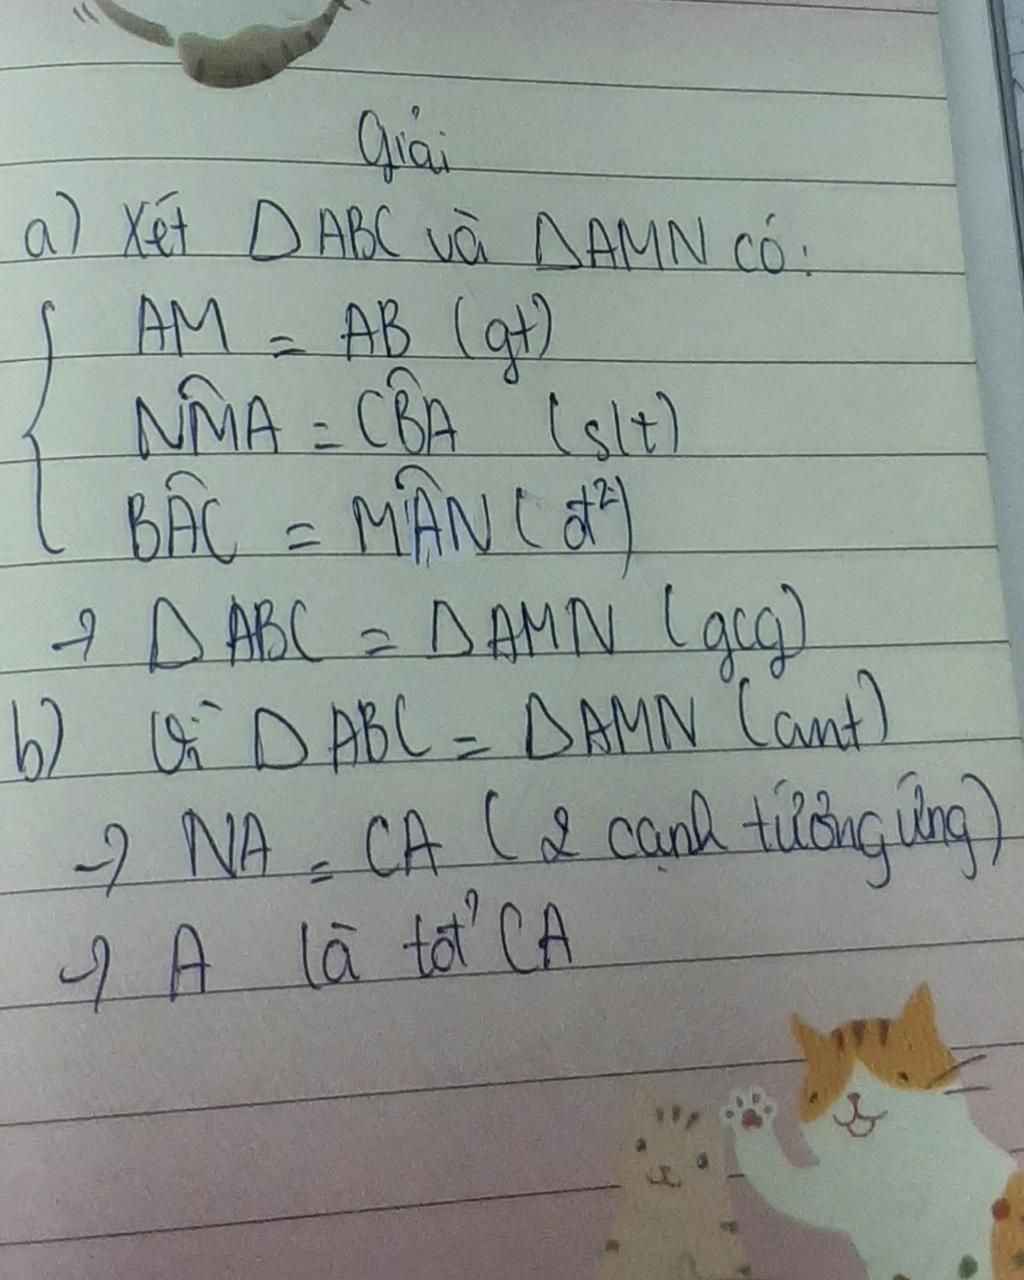 Giải
a) Xét Δ ABC và Δ AMN có:
AM = AB (gt)
NM̂A = CB̂A (slt)
BÂC = MÂN (đ²)
→ Δ ABC = Δ AMN (gcg)
b) Vì Δ ABC = Δ AMN (cmt)
→ NA = CA (2 cạnh tương ứng)
→ A là tđ' CA